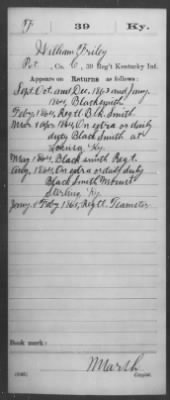 F | 39 | Ky.
William Friley
Pvt., Co. C, 39 Reg't Kentucky Inf.
Appears on Returns as follows:
Sept. Oct. and Dec. 1863 and Jany.
1864, Blacksmith
Feby 1864, Regtl Blk. Smith
Mar & Apr 1864, On extra or daily
duty Black Smith at
Louisa, Ky.
May 1864, Black smith Regt.
Aug. 1864, On extra or daily duty
Black Smith Mount
Sterling Ky.
Jany. & Feby 1865, Regtl Teamster
Book mark:
Marsh
Copyist.